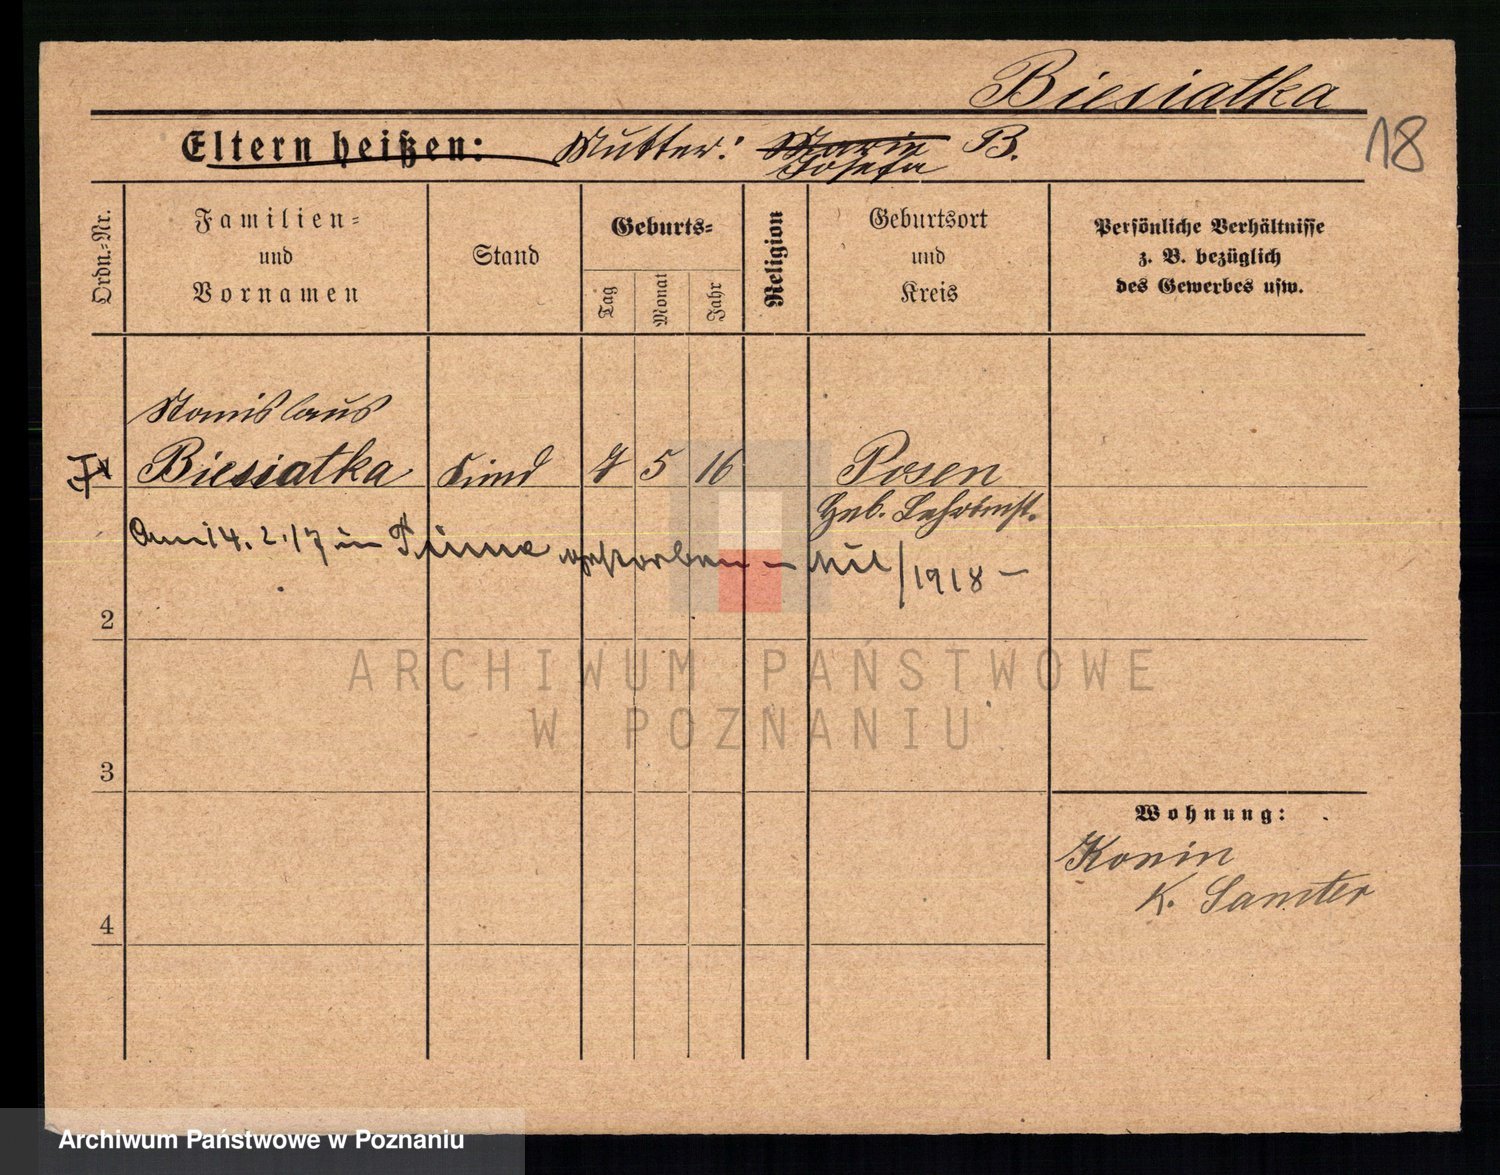 Biesiatka
18
Eltern heißen: Mutter: Marie B.
Josefa
Ordn.=Nr.
Familien=
und
Vornamen
Stand
Geburts=
Tag
Monat
Jahr
Religion
Geburtsort
und
Kreis
Persönliche Verhältnisse
z. B. bezüglich
des Gewerbes usw.
Stanislaus
Biesiatka Kind 7 5 16 Posen
Geb.
Am 14. 2. 17 in gestorben – /1918 –
2
3
4
Wohnung:
Konin
K. Samter
ARCHIWUM PAŃSTWOWE
W POZNANIU
Archiwum Państwowe w Poznaniu